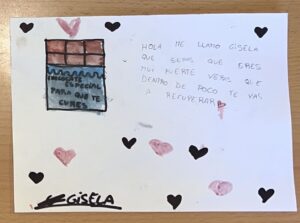 HOLA ME LLAMO GISELA
QUE SEPAS QUE ERES
MUY FUERTE VERAS QUE
DENTRO DE POCO TE VAS
A RECUPERAR
CHOCOLATE
ESPECIAL
PARA QUE TE
CURES
GISELA